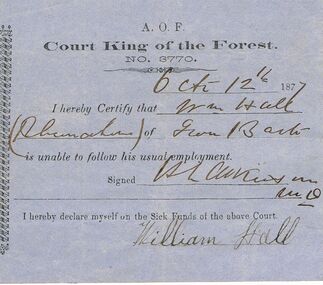 A. O. F.
Court King of the Forest.
NO. 3770.
Octr 12th 1877
I hereby Certify that Wm Hall
of Iron Bark
is unable to follow his usual employment.
Signed
M D
I hereby declare myself on the Sick Funds of the above Court.
William Hall